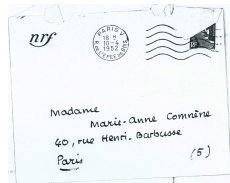 nrf
PARIS V
18 H
10-4
1952
RF
Madame
Marie-Anne Comnène
40, rue Henri-Barbusse
Paris (5)